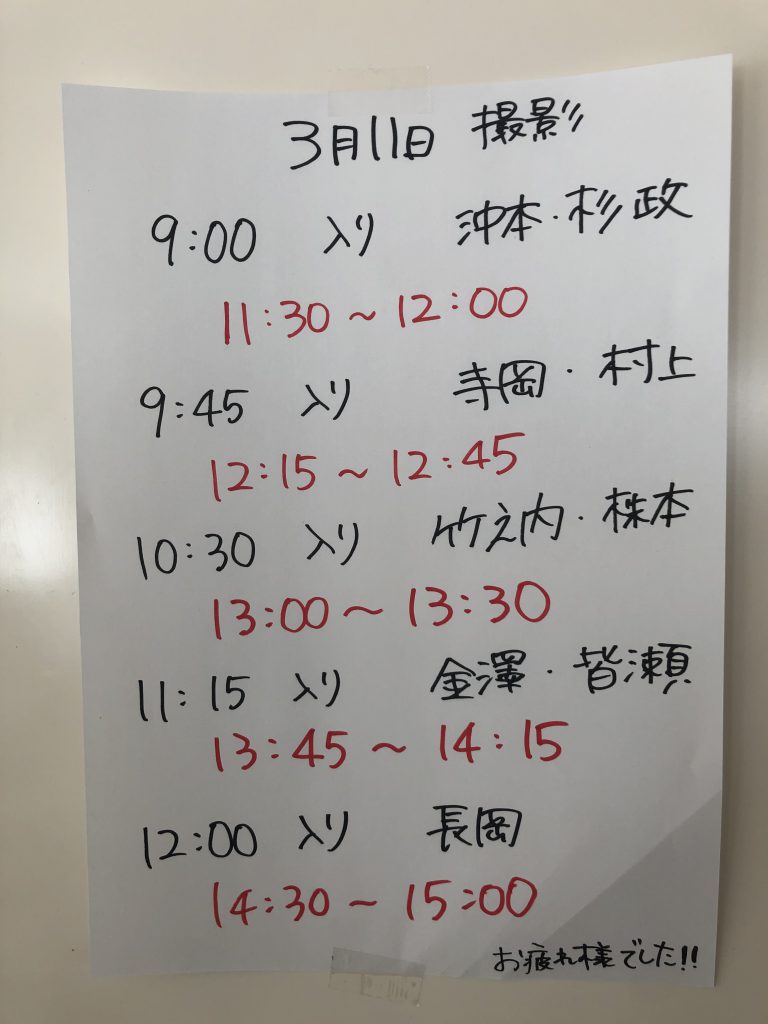 3月11日 撮影
9:00 入り 沖本・杉政
11:30～12:00
9:45 入り 寺岡・村上
12:15～12:45
10:30 入り 竹之内・株本
13:00～13:30
11:15 入り 金澤・皆瀬
13:45～14:15
12:00 入り 長岡
14:30～15:00
お疲れ様でした!!